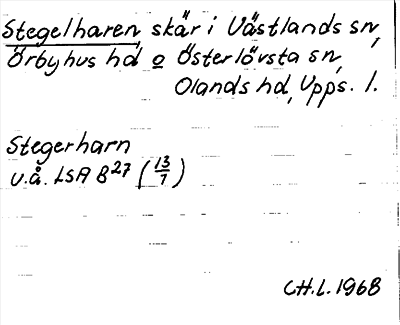 Stegelharen, skär i Västlands sn,
Örbyhus hd o Österlövsta sn,
Olands hd, Upps. l.
Stegerharn
u.å. LSA B27 (13/7)
CH.L. 1968